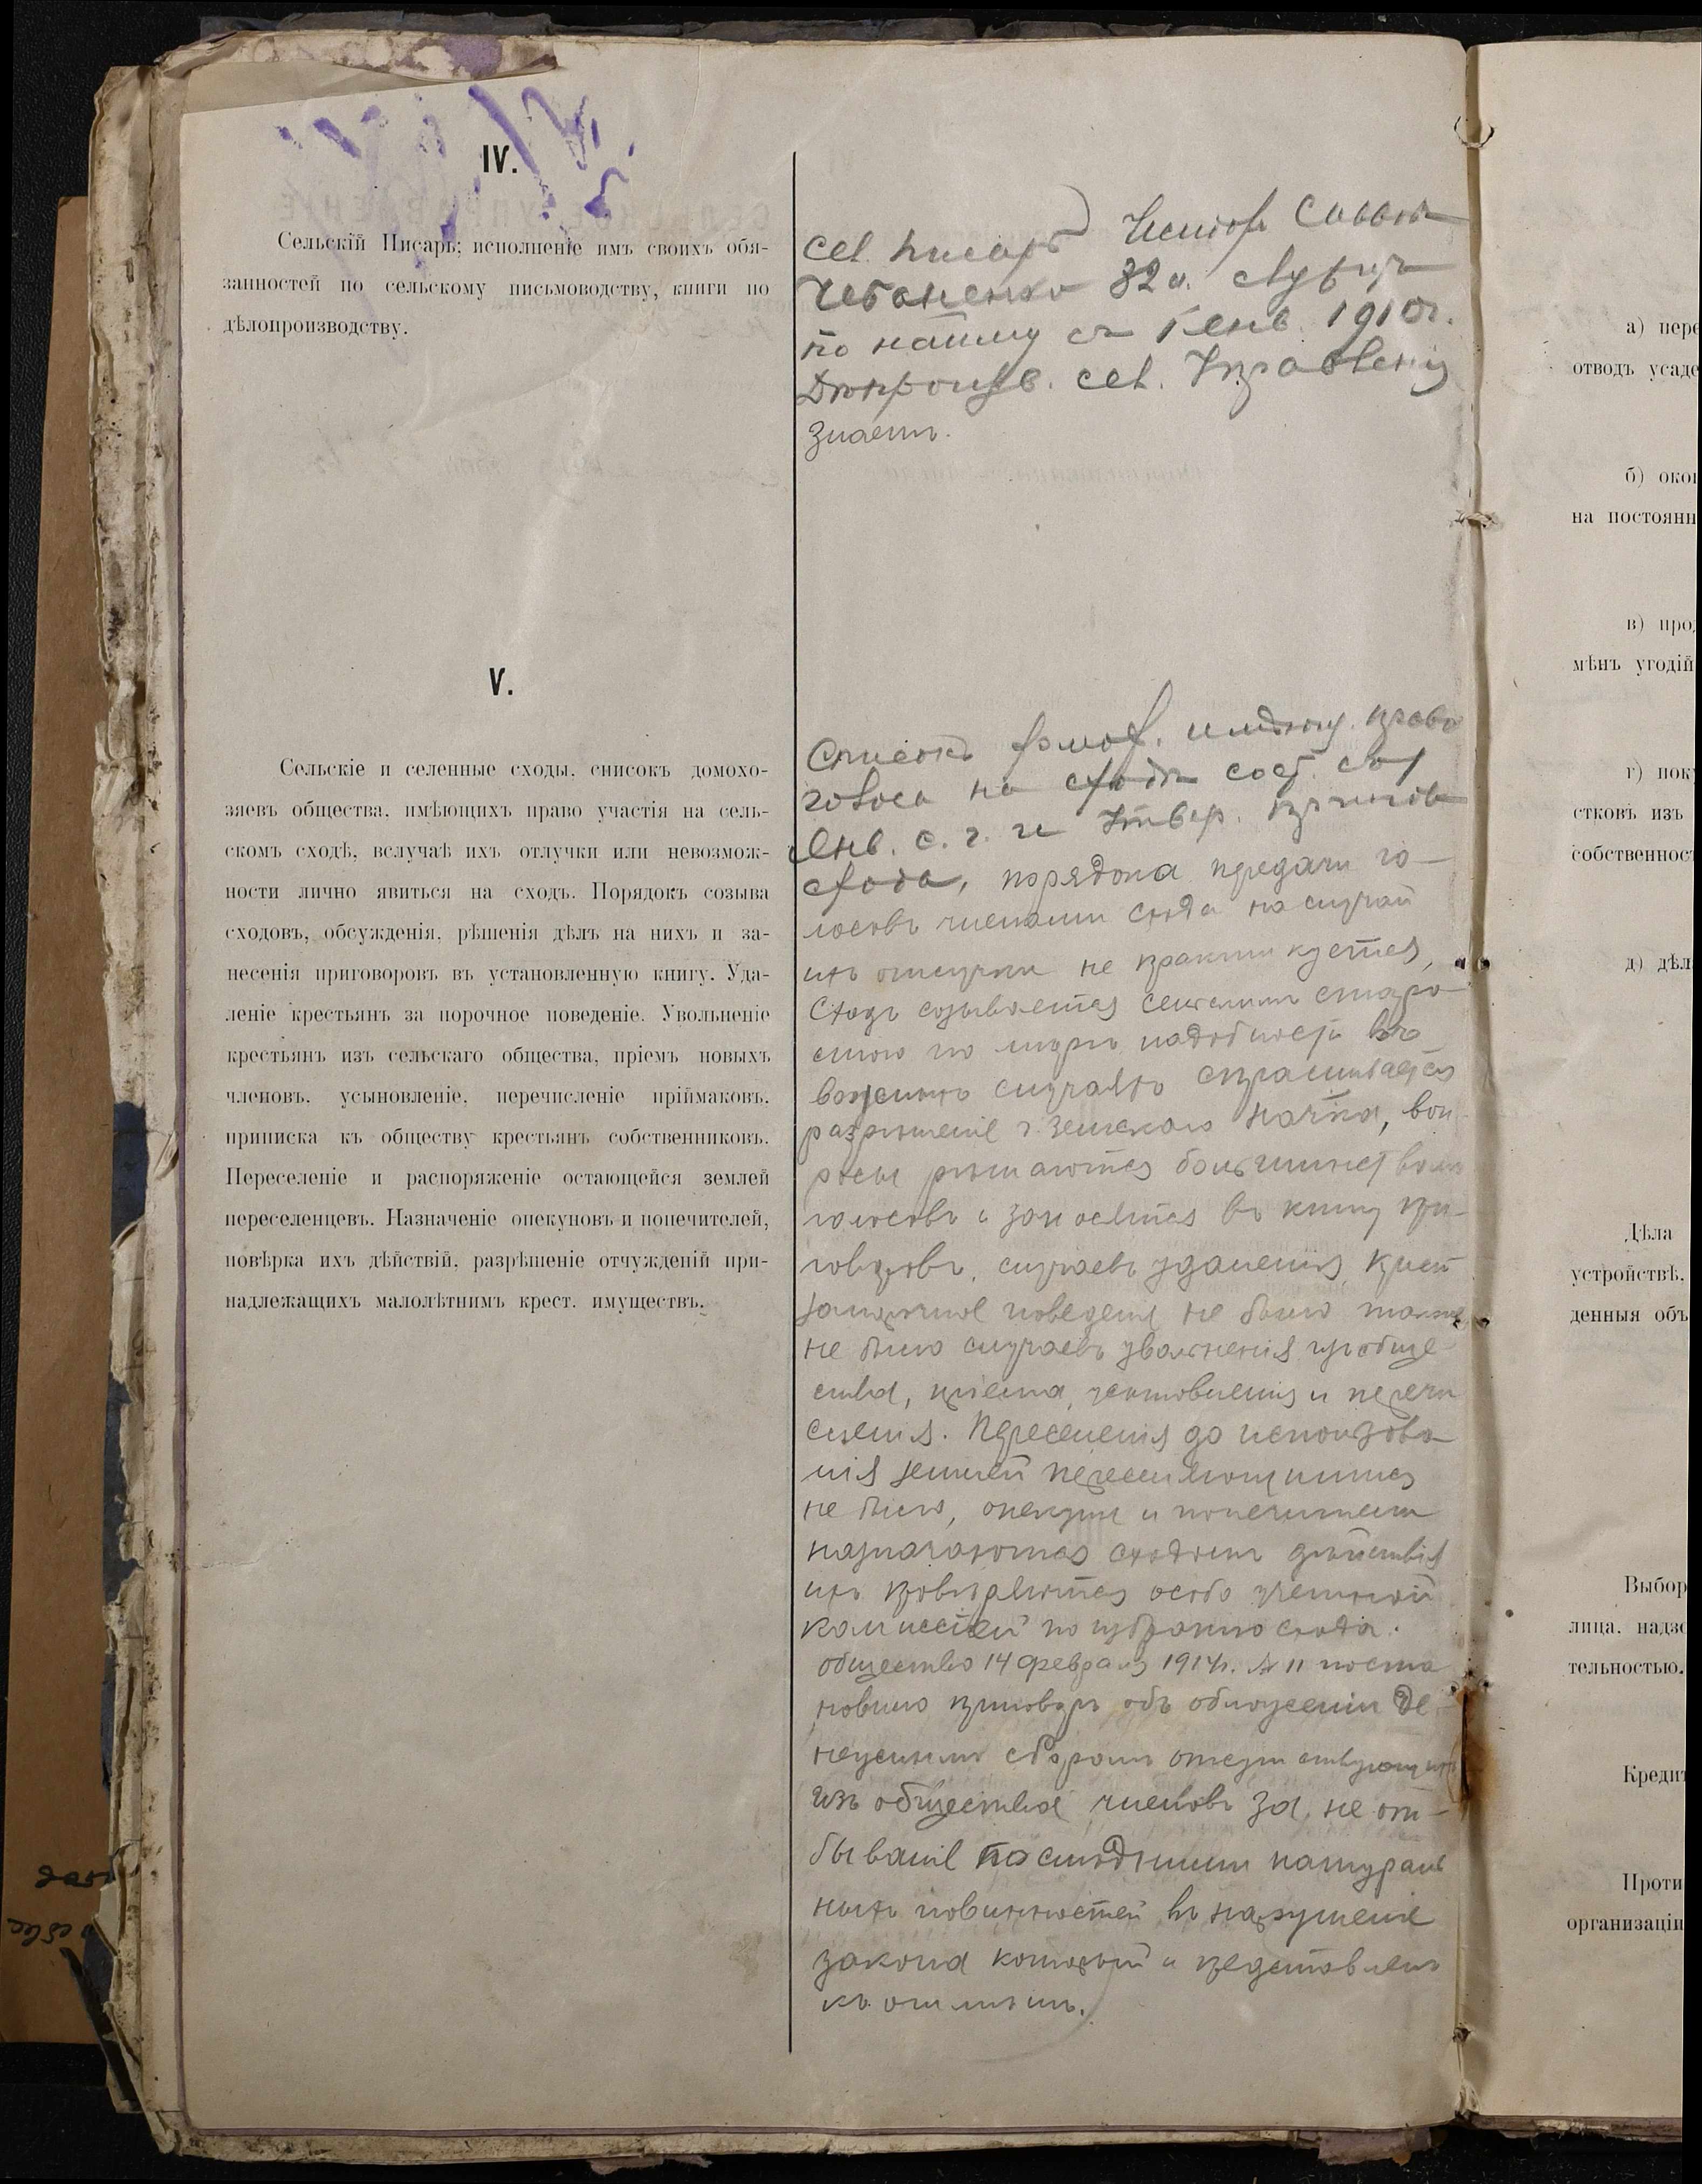 IV.
Сельскій Писарь; исполненіе имъ своихъ обя-
занностей по сельскому письмоводству, книги по
дѣлопроизводству.
Сел. писарь Несторъ Саввовъ
Чебаненко 32 л. служитъ
по найму съ 1 Енв. 1910г.
сел. Управленія
знаетъ.
V.
Сельскіе и селенные сходы, списокъ домохо-
зяевъ общества, имѣющихъ право участія на сель-
скомъ сходѣ, вслучаѣ ихъ отлучки или невозмож-
ности лично явиться на сходъ. Порядокъ созыва
сходовъ, обсужденія, рѣшенія дѣлъ на нихъ и за-
несенія приговоровъ въ установленную книгу. Уда-
леніе крестьянъ за порочное поведеніе. Увольненіе
крестьянъ изъ сельскаго общества, пріемъ новыхъ
членовъ, усыновленіе, перечисленіе пріймаковъ,
приписка къ обществу крестьянъ собственниковъ.
Переселеніе и распоряженіе остающейся землей
переселенцевъ. Назначеніе опекуновъ и попечителей,
повѣрка ихъ дѣйствій, разрѣшеніе отчужденій при-
надлежащихъ малолѣтнимъ крест. имуществъ.
Списокъ домох. имѣющ. право
голоса на сходѣ сост.
Енв. с. г. и утвер. приговор
схода, порядока передачи го-
лосовъ членами схода на случай
ихъ отлучки не практикуется,
Сходъ созывается сельскимъ старо-
стою по мѣрѣ надобности въ
важныхъ случаяхъ спрашивается
разрѣшеніе г. Земскаго Нач-ка, воп-
росы рѣшаются большинствомъ
голосовъ и заносятся въ книгу при-
говоровъ, случаевъ удаленія крест
за порочное поведенія не было также
не было случаевъ увольненія изъ обще-
ства, пріема, усыновленія и перечи
сленія. Переселенія до использова
нія землей переселяющимися
не было, опекуны и попечители
назначаются сходомъ дѣйствія
ихъ провѣряются особо учетной
комиссіей по избранію схода.
общество 14 февраля 1914г. № 11 поста
новило приговоръ объ обложеніи де-
нежнымъ сборомъ отсутствующихъ
изъ общества членовъ за не от-
бываніе послѣдними натураль
ныхъ повинностей въ нарушеніе
закона который и представленъ
къ отмѣнѣ.
а) пере
отводъ усаде
б) окон
на постоянн
в) про
мѣнъ угодій
г) пок
стковъ изъ
собственнос
д) дѣл
Дѣла
устройствѣ,
денныя объ
Выбор
лица, надзо
тельностью.
Кредит
Проти
организаціи